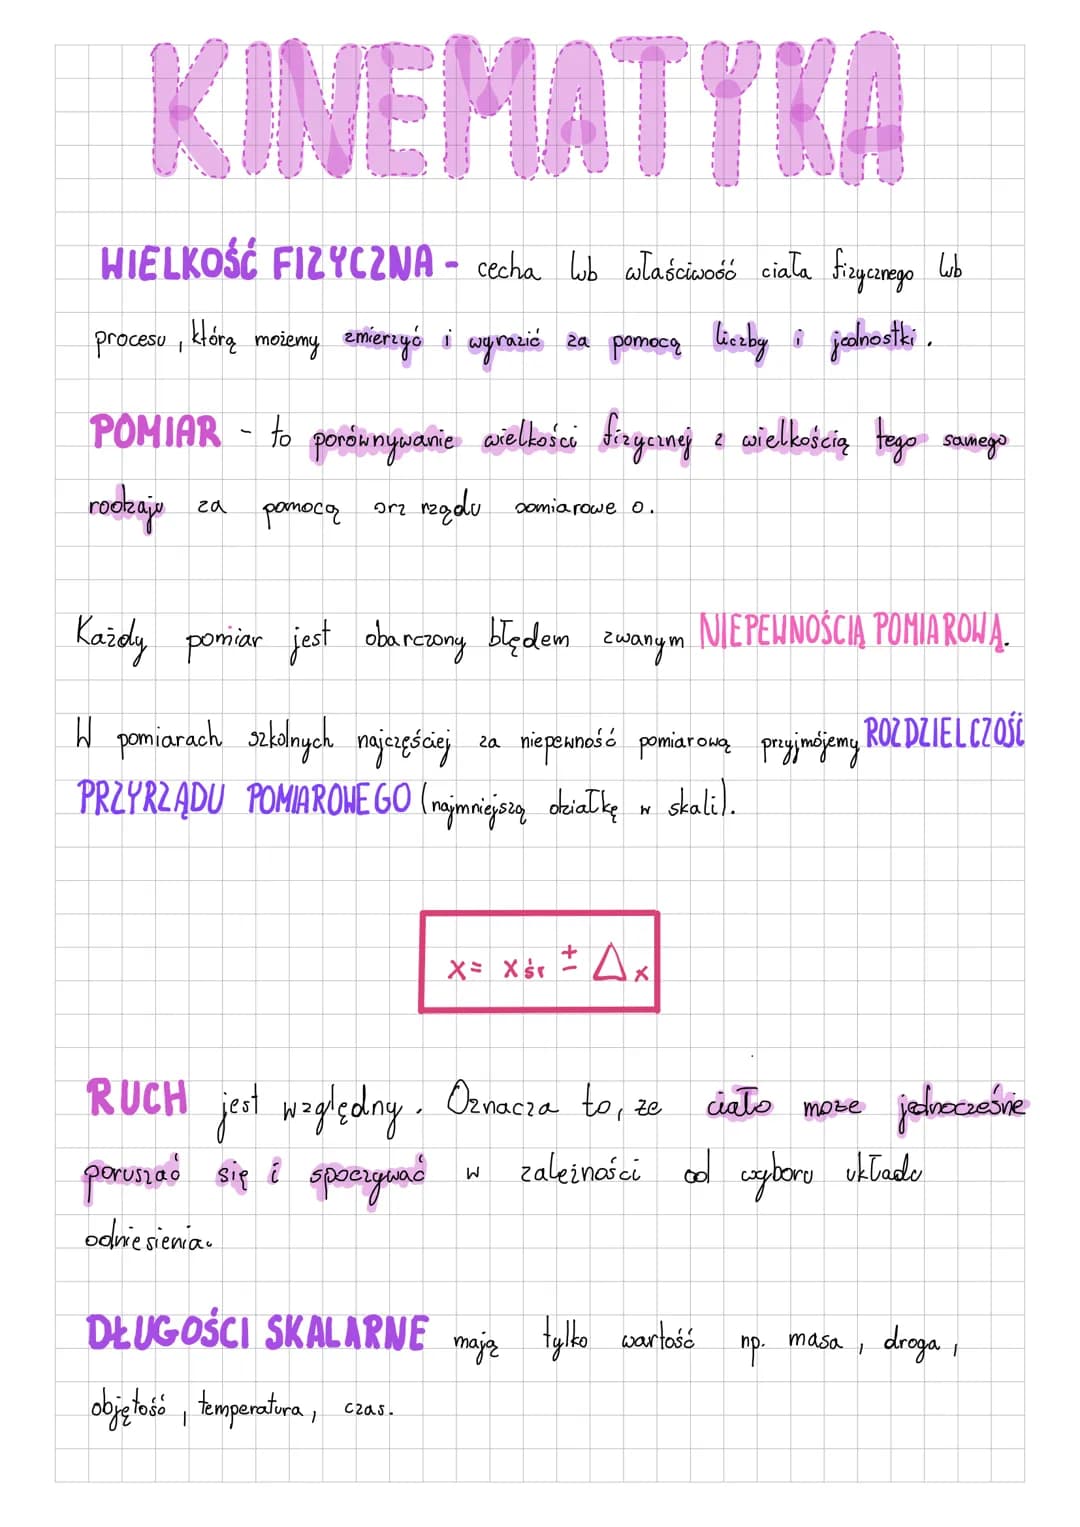 KINEMATYKA
WIELKOŚĆ FIZYCZNA - cecha lub właściwość ciała fizycznego lub
procesu, którą możemy zmierzyć i wyrazić za pomocą liczby i jednostki.
POMIAR - to porównywanie wielkości fizycznej z wielkością tego samego
rodzaju za pomocą prz rządu pomiarowe o.
Każdy pomiar jest obarczony błędem zwanym NIEPEWNOŚCIĄ POMIAROWĄ.
W pomiarach szkolnych najczęściej za niepewność pomiarową przyjmójemy ROZDZIELCZOŚĆ
PRZYRZĄDU POMIAROWEGO (najmniejszą działkę w skali).
x = xśr ± Δx
RUCH jest względny. Oznacza to, że ciało może jednocześnie
poruszać się i spoczywać w zależności od wyboru układu
odniesienia.
DŁUGOŚCI SKALARNE mają tylko wartość np. masa, droga,
objętość, temperatura, czas.